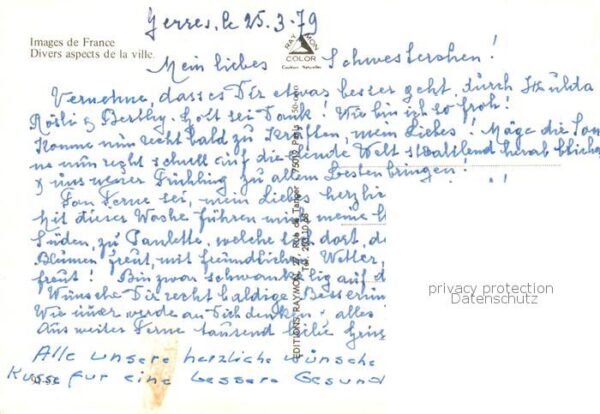 Yerres, le 25.3.79
Images de France
Divers aspects de la ville.
RAY MON
COLOR
Mein liebes Schwesterchen!
Vernehme, dass es Dir etwas besser geht, durch Hulda
Rösli & Berthy. Gott sei Dank! Wie bin ich so froh!
Komme nun recht bald zu Kräften, mein Liebes! Möge die Son
ne nun recht schnell auf die Welt strahlend herab blicken
& uns neuer Frühling zu allem Besten bringen!
Von Ferne sei, mein Liebes herzli
Mit dieser Woche führen mich meine
Süden, zu Paulette, welche sich dort, d
Blumen freut, mit freundlichem Wetter,
freut! Bin zwar schwank auf d
Wünsche Dir recht baldige Besserun
Wie immer werde an Dich denken, alles
Aus weiter Ferne tausend liebe Grüs
Alle unsere herzliche Wünsche
Küsse für eine bessere Gesund
EDITIONS RAYMON, 27, Rue de Tanger - 75019 Paris
Tél. 203.10.68
privacy protection
Datenschutz